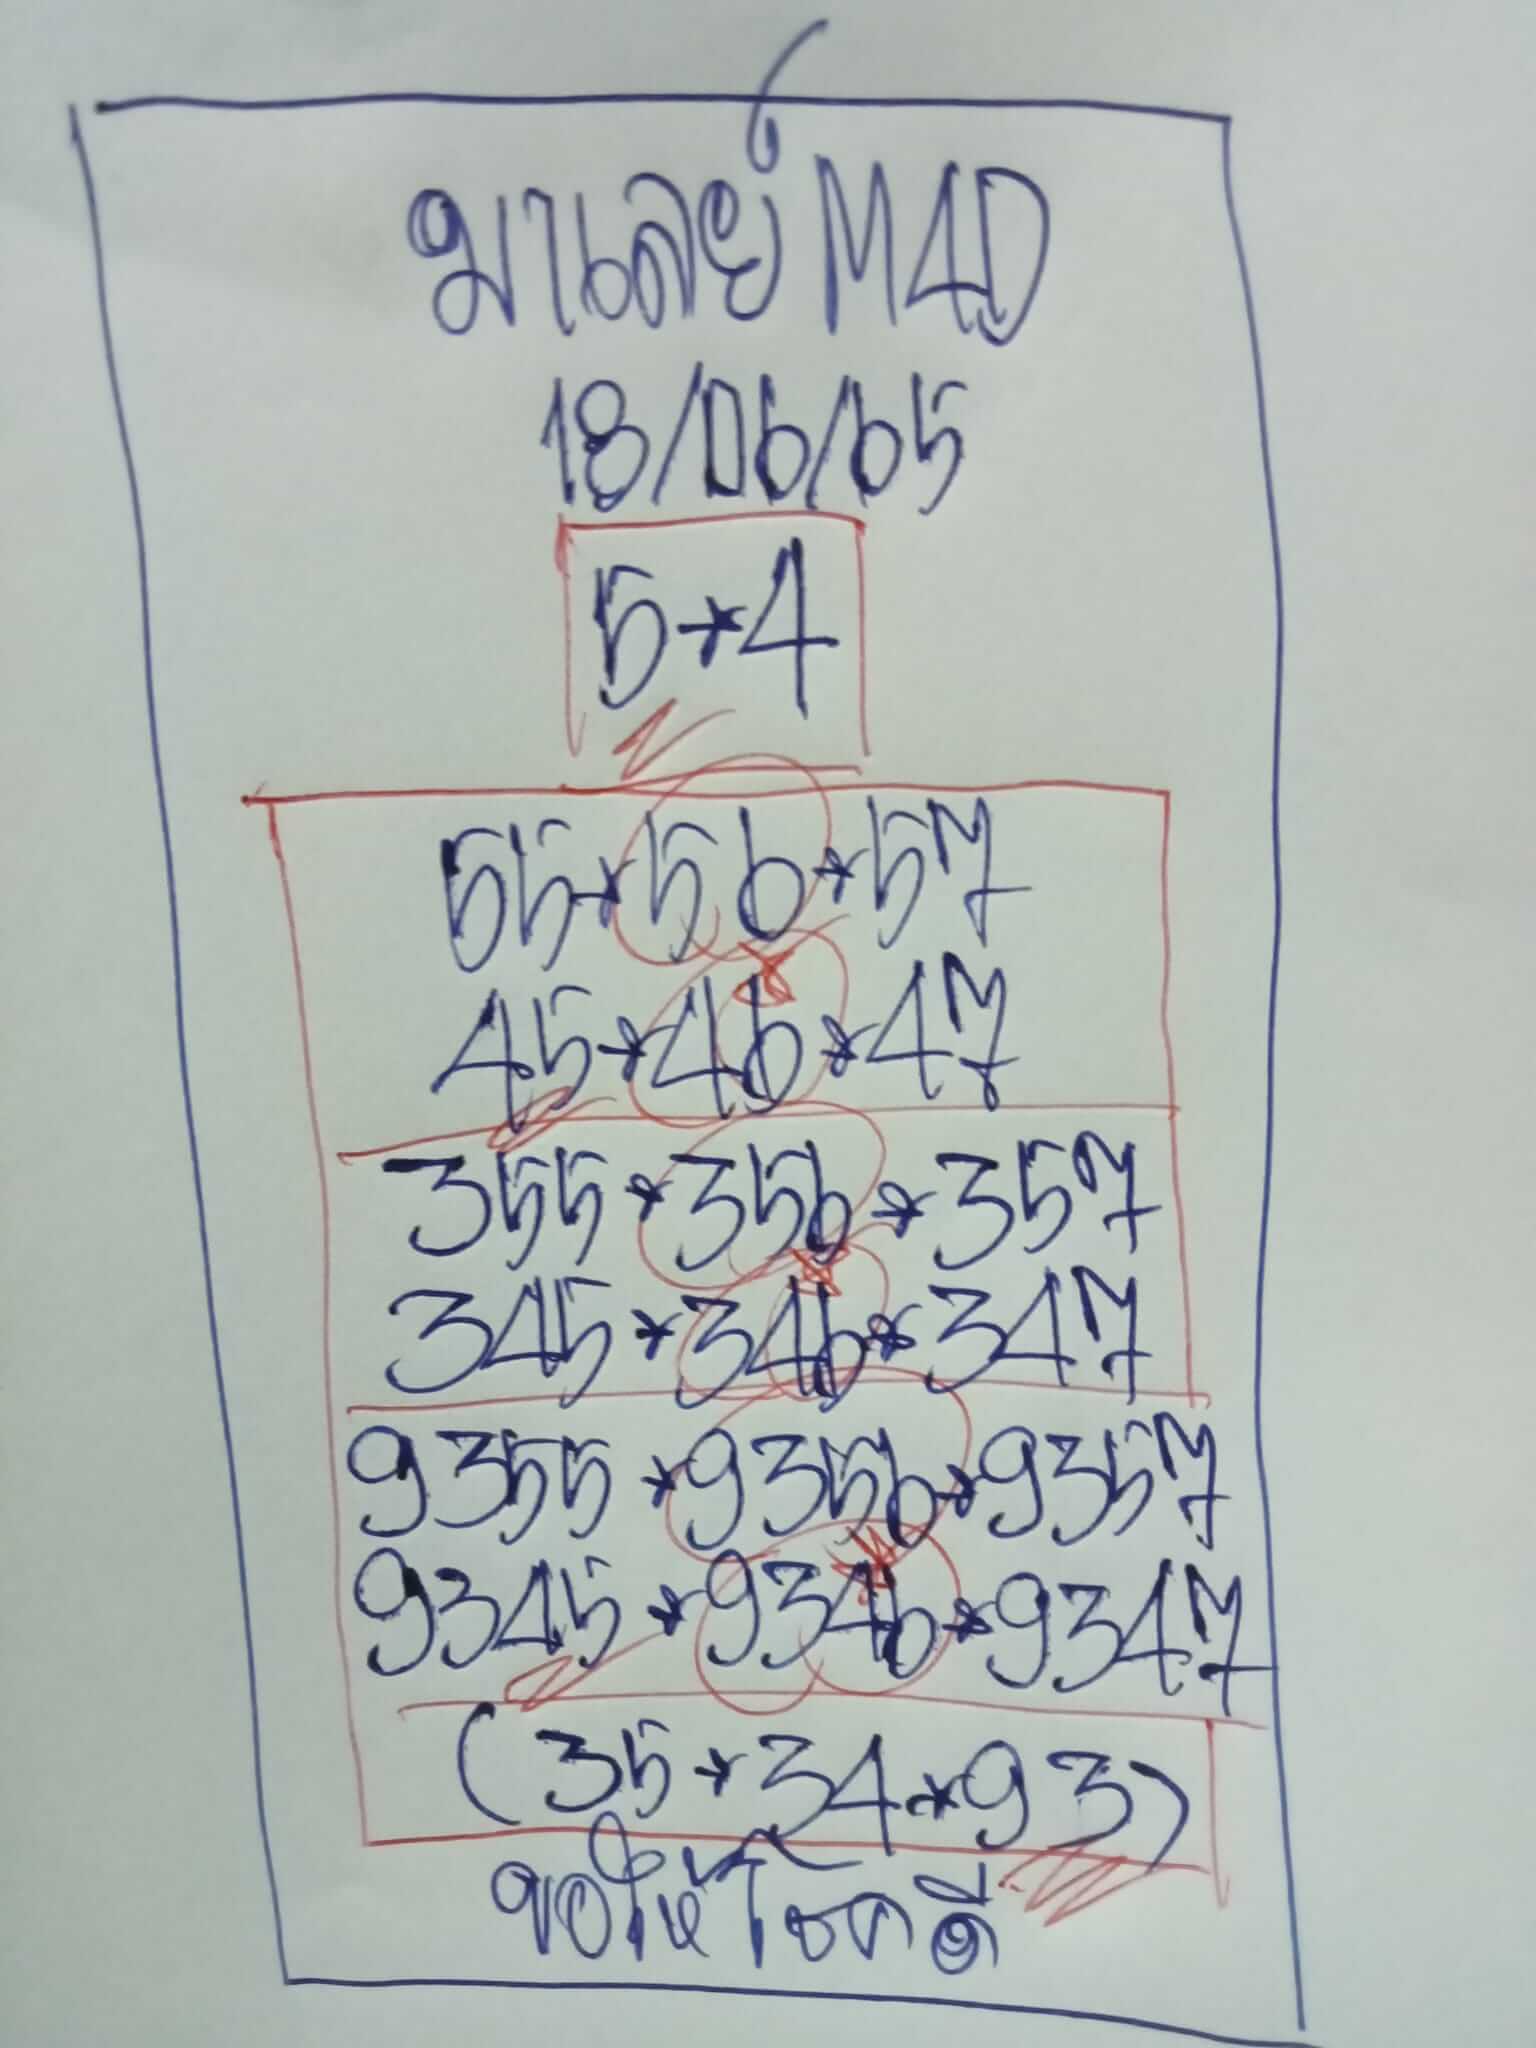 มาเลย์ M4D
18/06/65
5*4
55*56*57
45*46*47
355*356*357
345*346*347
9355*9356*9357
9345*9346*9347
(35*34*93)
ขอให้โชคดี